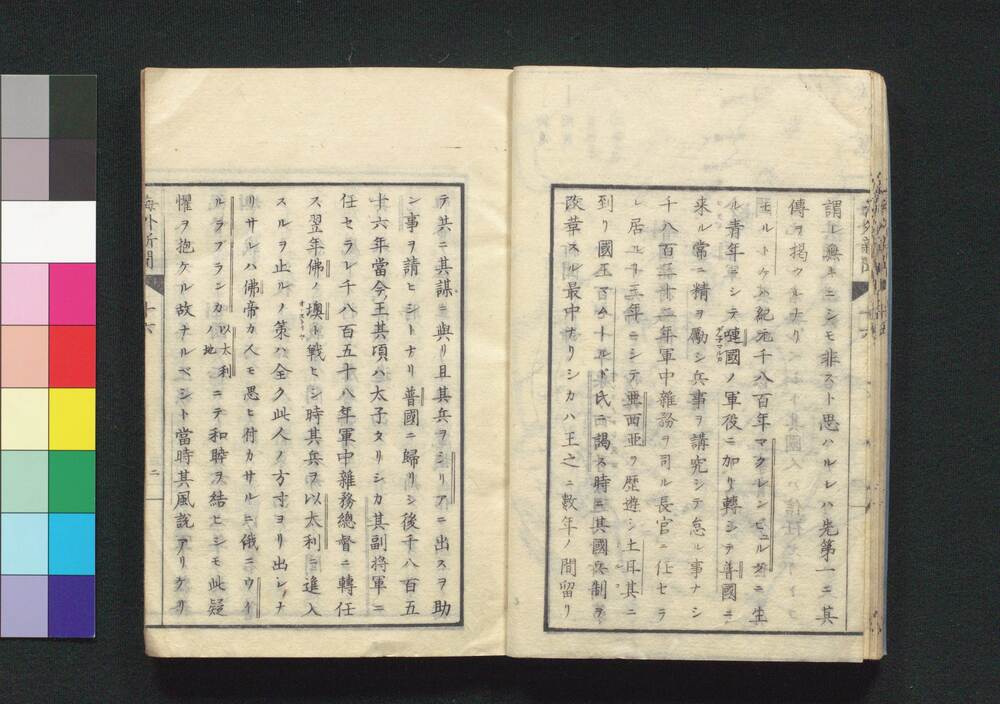 謂レ無キニシモ非スト思ハルレハ先第一ニ其
傳ヲ掲クルナリ
モルトケハ紀元千八百年マクレンビュルグニ生
ル青年ニシテ嗹國ノ軍役ニ加リ轉シテ普國ニ
デネマルカ
来ル常ニ精ヲ勵シ兵事ヲ講究シテ怠ル事ナシ
千八百三十二年軍中雜務ヲ司ル長官ニ任セラ
レ居ル事三年ニシテ亜西亜ヲ歴遊シ土耳其ニ
到リ國王ニ謁ス時ニ其國兵制ヲ
改革スル最中ナリシカハ王之ニ數年ノ間留リ
テ共ニ其謀ニ與リ且其兵ヲシリアニ出スヲ助
ン事ヲ請ヒシトナリ普國ニ歸リシ後千八百五
十六年當今王其頃ハ太子タリシカ其副將軍ニ
任セラレ千八百五十八年軍中雜務總督ニ轉任
ス翌年佛ノ墺ト戰ヒシ時其兵ヲ以太利ニ進入
オーストリヤ
スルヲ止ルノ策ハ全ク此人ノ方寸ヨリ出シナ
リサレハ佛帝カ人モ思ヒ付カサルニ俄ニウ井
ルラフランカ以太利ノ地ニテ和睦ヲ結ヒシモ此疑
懼ヲ抱ケル故ナルベシト當時其風說アリケリ
海外新聞
十六
二